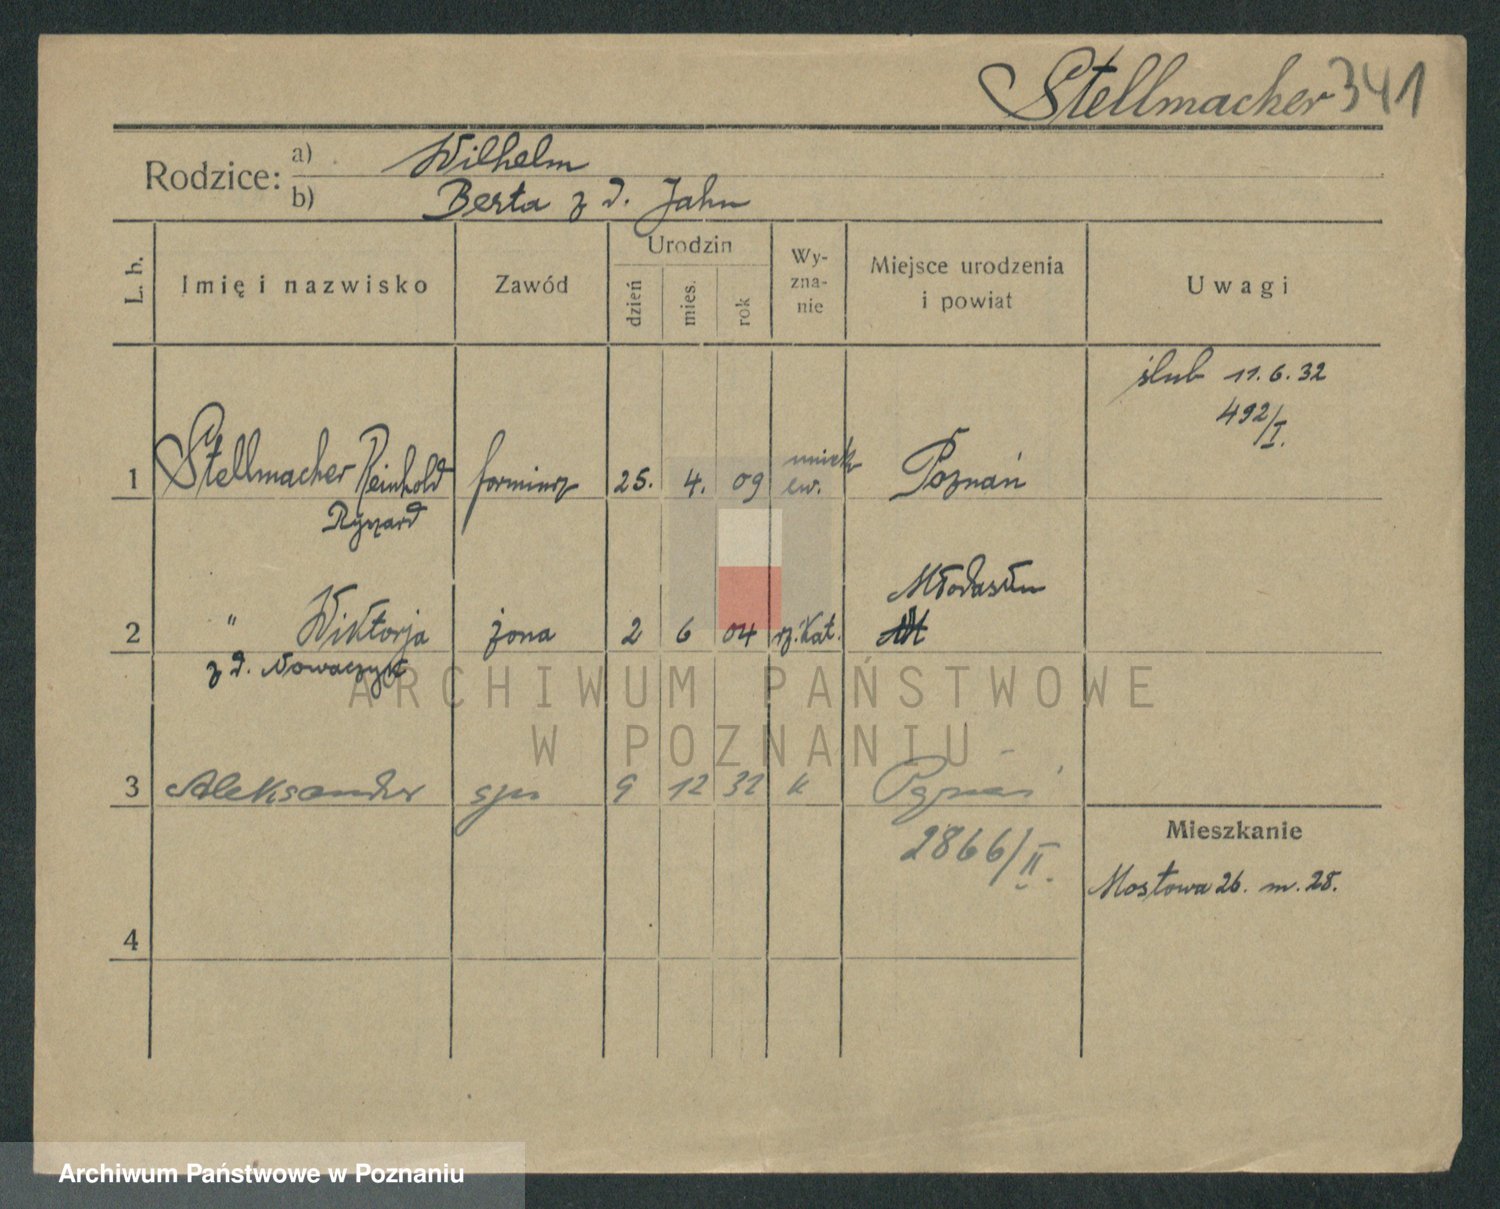 Stellmacher 341
Rodzice: a) Wilhelm
b) Berta z d. Jahn
L. b. Imię i nazwisko Zawód Urodzin dzień mies. rok Wy-zna-nie Miejsce urodzenia i powiat Uwagi
ślub 11.6.32
492/I.
1 Stellmacher Reinhold formierz 25. 4. 09 ew. Poznań
Ryszard
Młodasko
2 " Wiktorja żona 2 6 04 rz. kat.
z d. Nowaczyk
ARCHIWUM PAŃSTWOWE
W POZNANIU
3 Aleksander syn 9 12 32 k Poznań
2866/II.
Mieszkanie
Mostowa 26. m. 28.
4
Archiwum Państwowe w Poznaniu